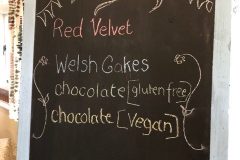 Red Velvet
Welsh Cakes
chocolate [gluten free]
chocolate [vegan]